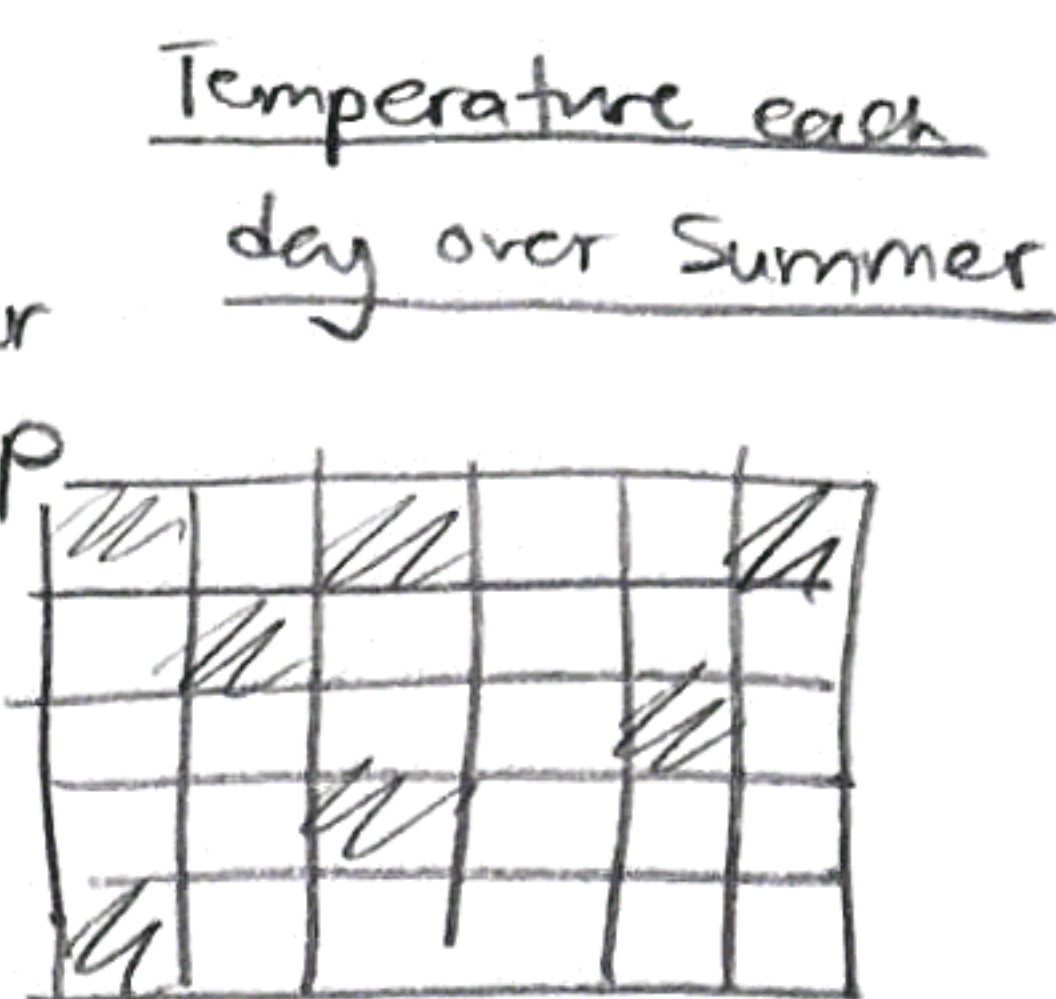 Temperature each
day over Summer